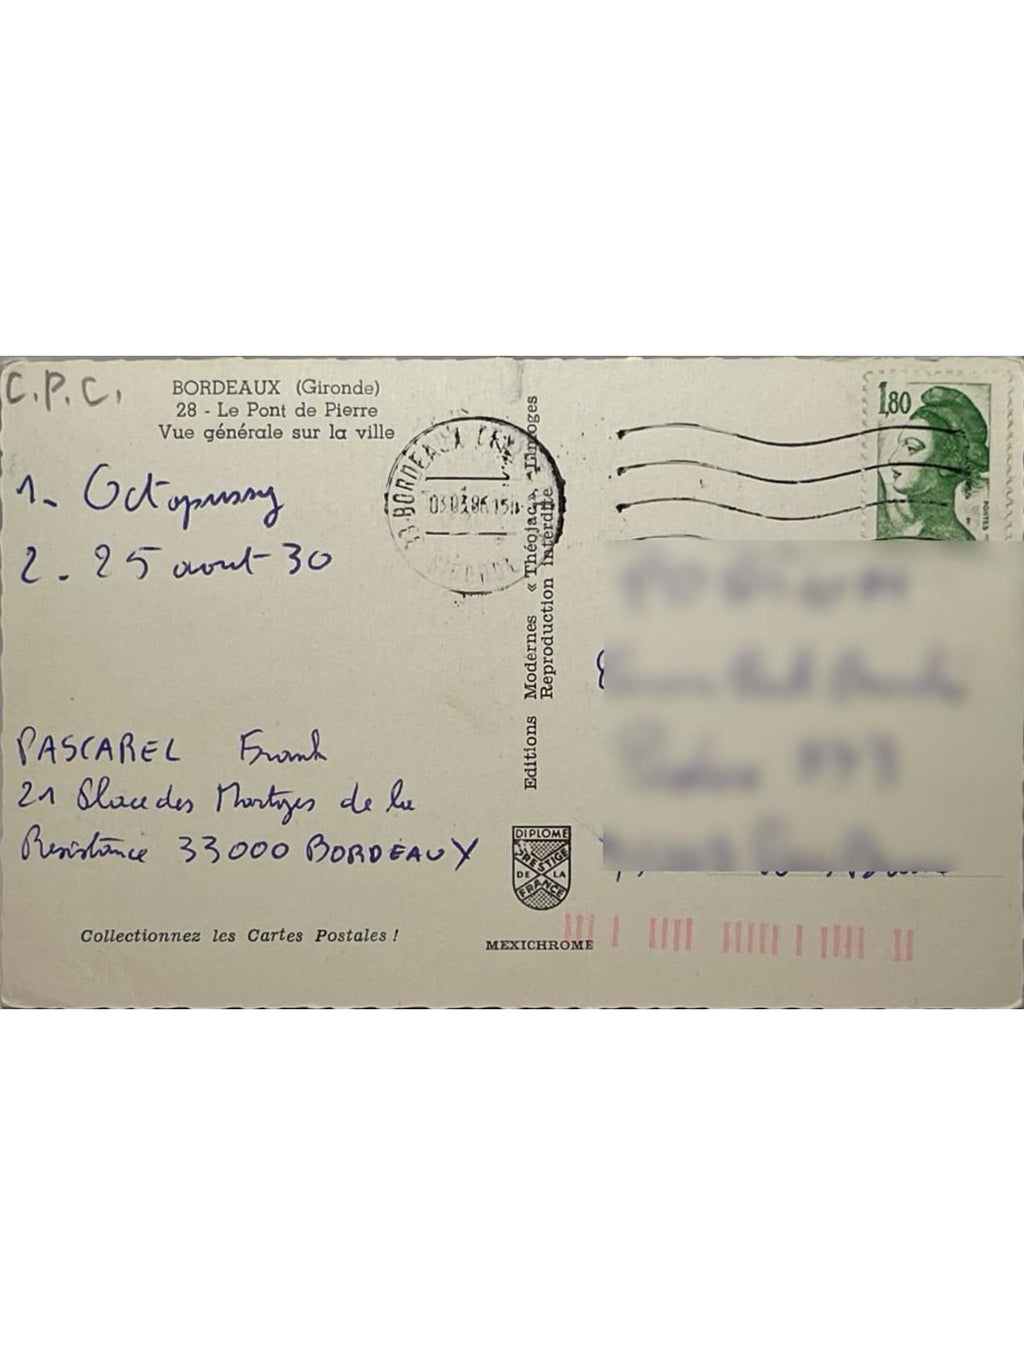 C.P.C.
BORDEAUX (Gironde)
28 - Le Pont de Pierre
Vue générale sur la ville
1- Octopussy
2- 25 aout 30
PASCAREL Frank
21 Place des Martyrs de la
Resistance 33000 BORDEAUX
Collectionnez les Cartes Postales !
33 BORDEAUX
GIRONDE
Editions Modernes « Théojac » Limoges
Reproduction interdite
DIPLOME
PRESTIGE
DE LA
FRANCE
MEXICHROME
1,80
POSTES